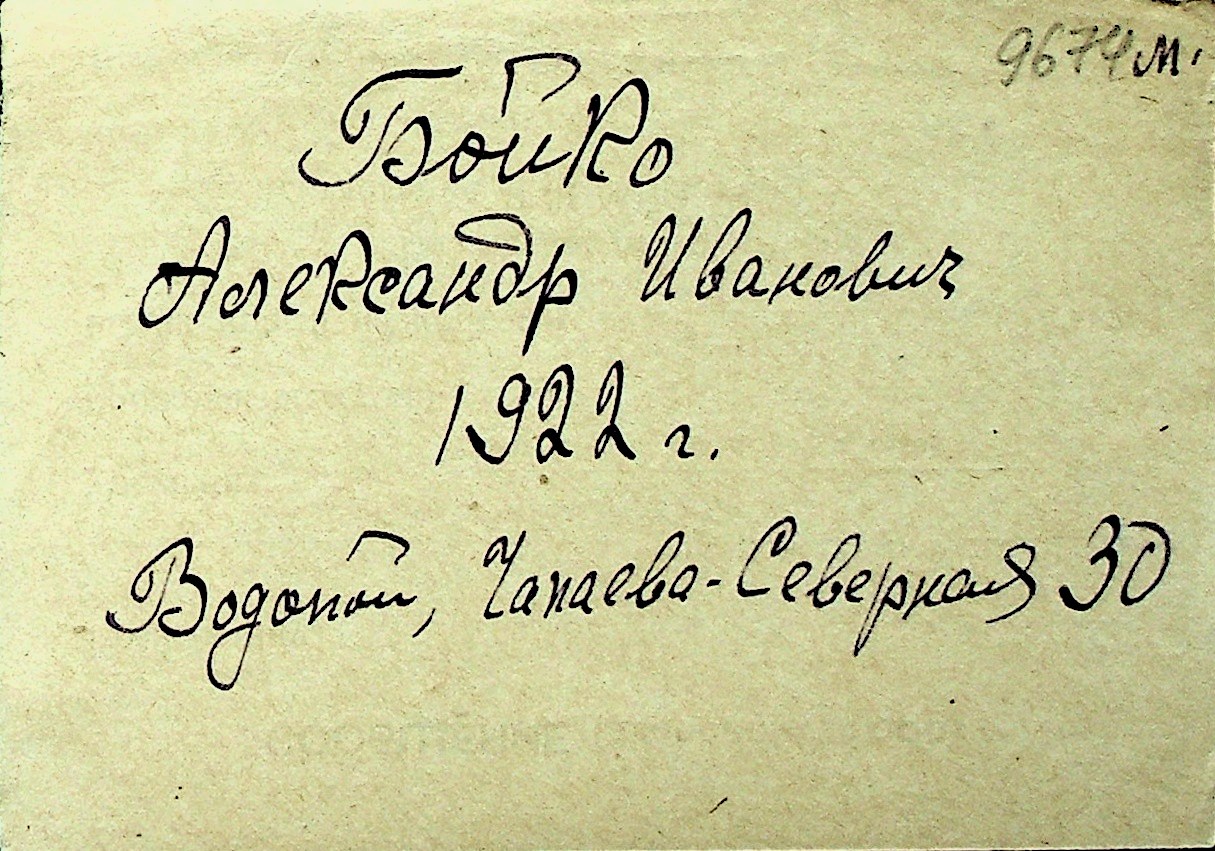 9674 м.
Бойко
Александр Иванович
1922 г.
Водопой, Чапаева-Северная 30